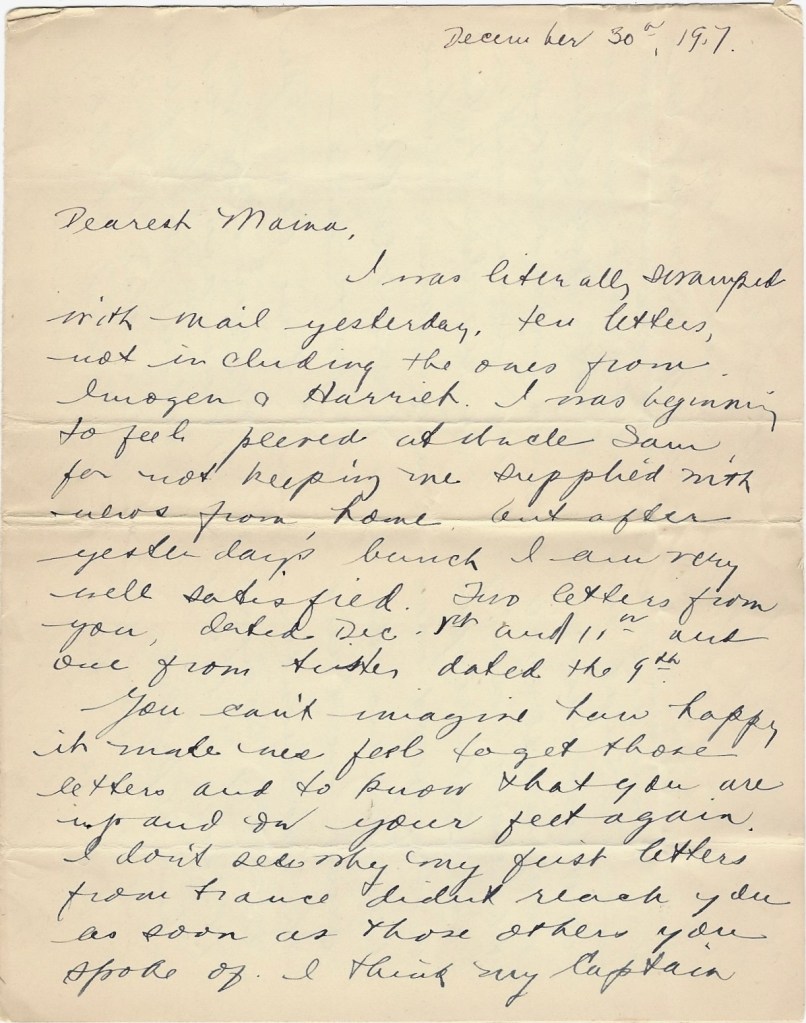 December 30th, 1917.
Dearest Mama,
I was literally swamped
with mail yesterday, ten letters,
not including the ones from
Imogen & Harriet. I was beginning
to feel peeved at Uncle Sam
for not keeping me supplied with
news from home but after
yesterday's bunch I am very
well satisfied. Two letters from
you, dated Dec. 1st and 11th and
one from dated the 9th.
You can't imagine how happy
it made me feel to get those
letters and to know that you are
up and on your feet again.
I don't see why my first letters
from France didn't reach you
as soon as those others you
spoke of. I think my Captain